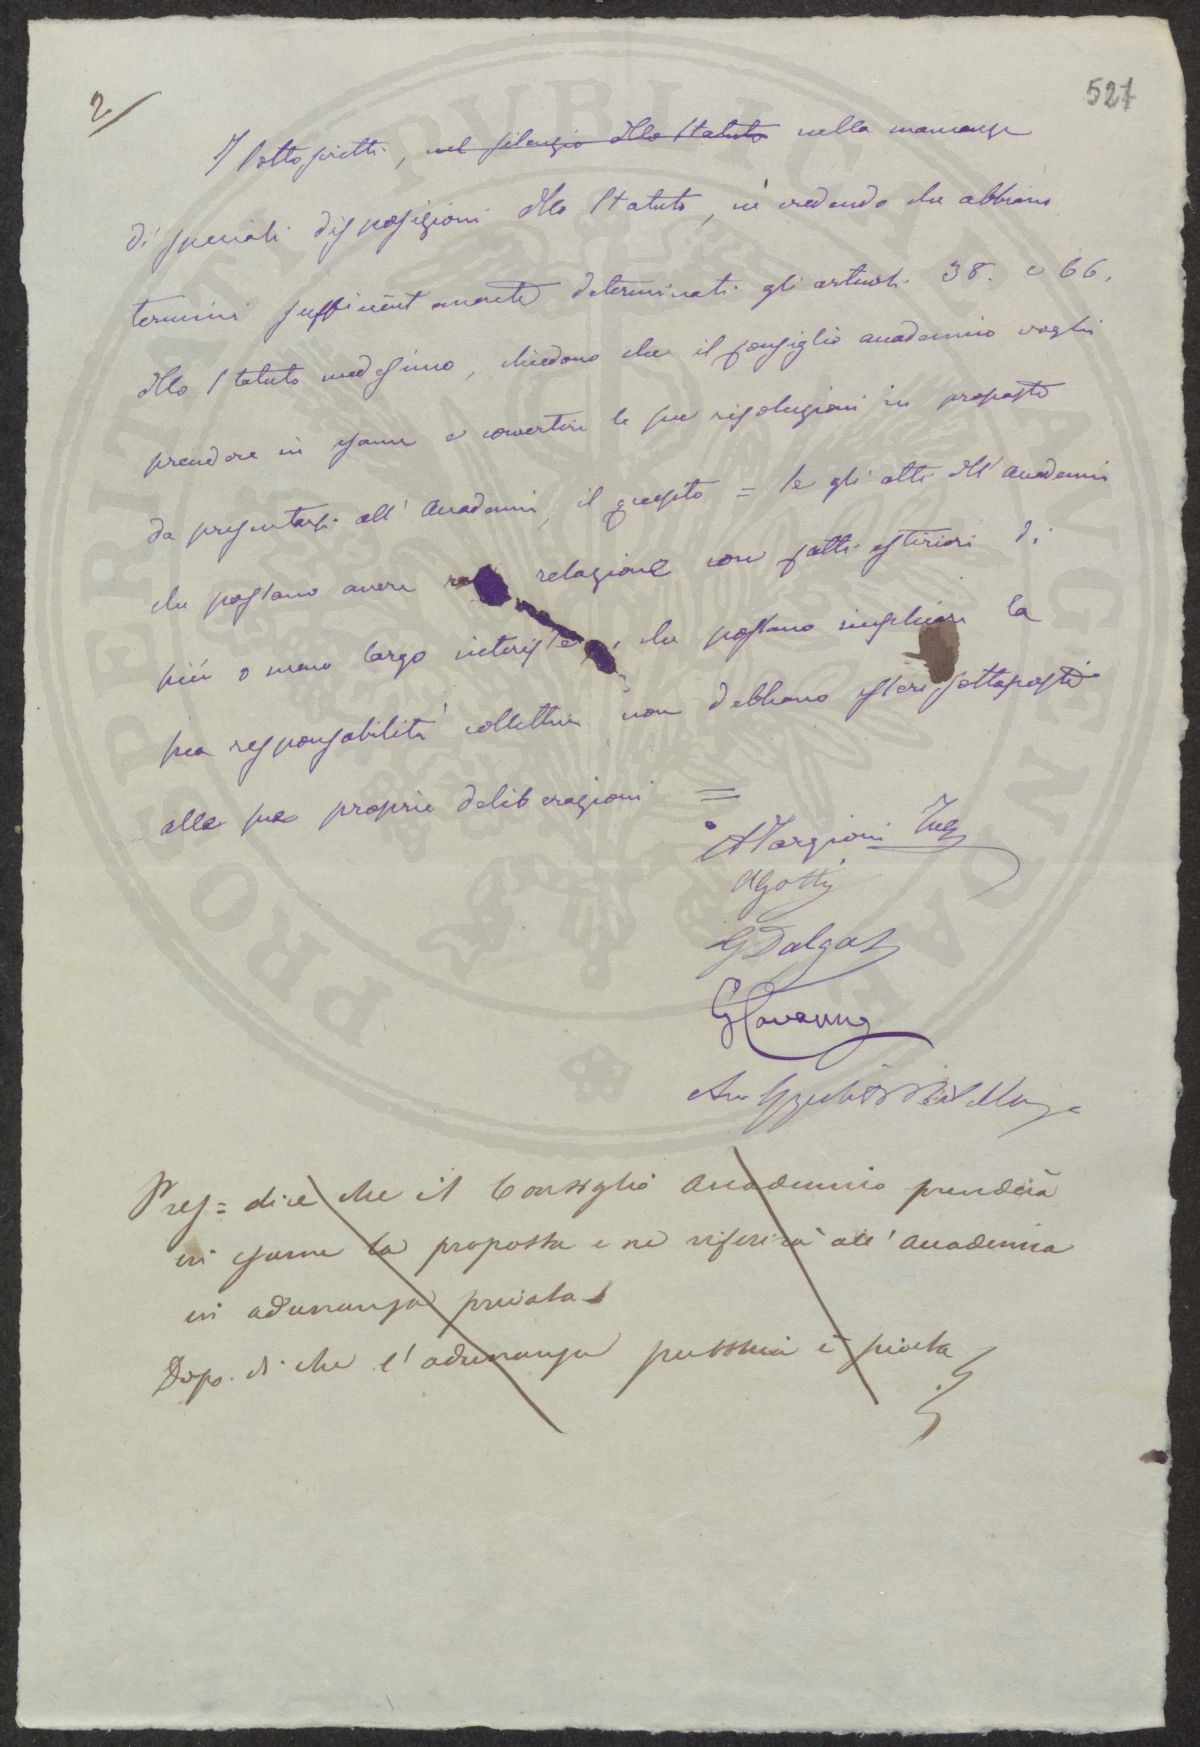 2
527
I sottoscritti, nel silenzio dello Statuto nella mancanza
di speciali disposizioni dello Statuto, nè credendo che abbiano
termini sufficientemente determinati gli articoli 38. e 66.
dello Statuto medesimo, chiedono che il consiglio accademico voglia
prendere in esame e convertire le sue risoluzioni in proposte
da presentarsi all'Accademia, il quesito = Se gli atti dell'Accademia
che possano avere relazione con fatti esteriori di
più o meno largo interesse, che possano implicare la
sua responsabilità collettiva non debbano essere sottoposti
alle sue proprie deliberazioni =
A Targioni Tozz
A Gotti
G Dalgas
Pres = dice che il Consiglio Accademico prenderà
in esame la proposta e ne riferirà all'Accademia
in adunanza privata
Dopo di che l'adunanza pubblica è sciolta
PROSPERITATI PVBLICAE AVGENDAE